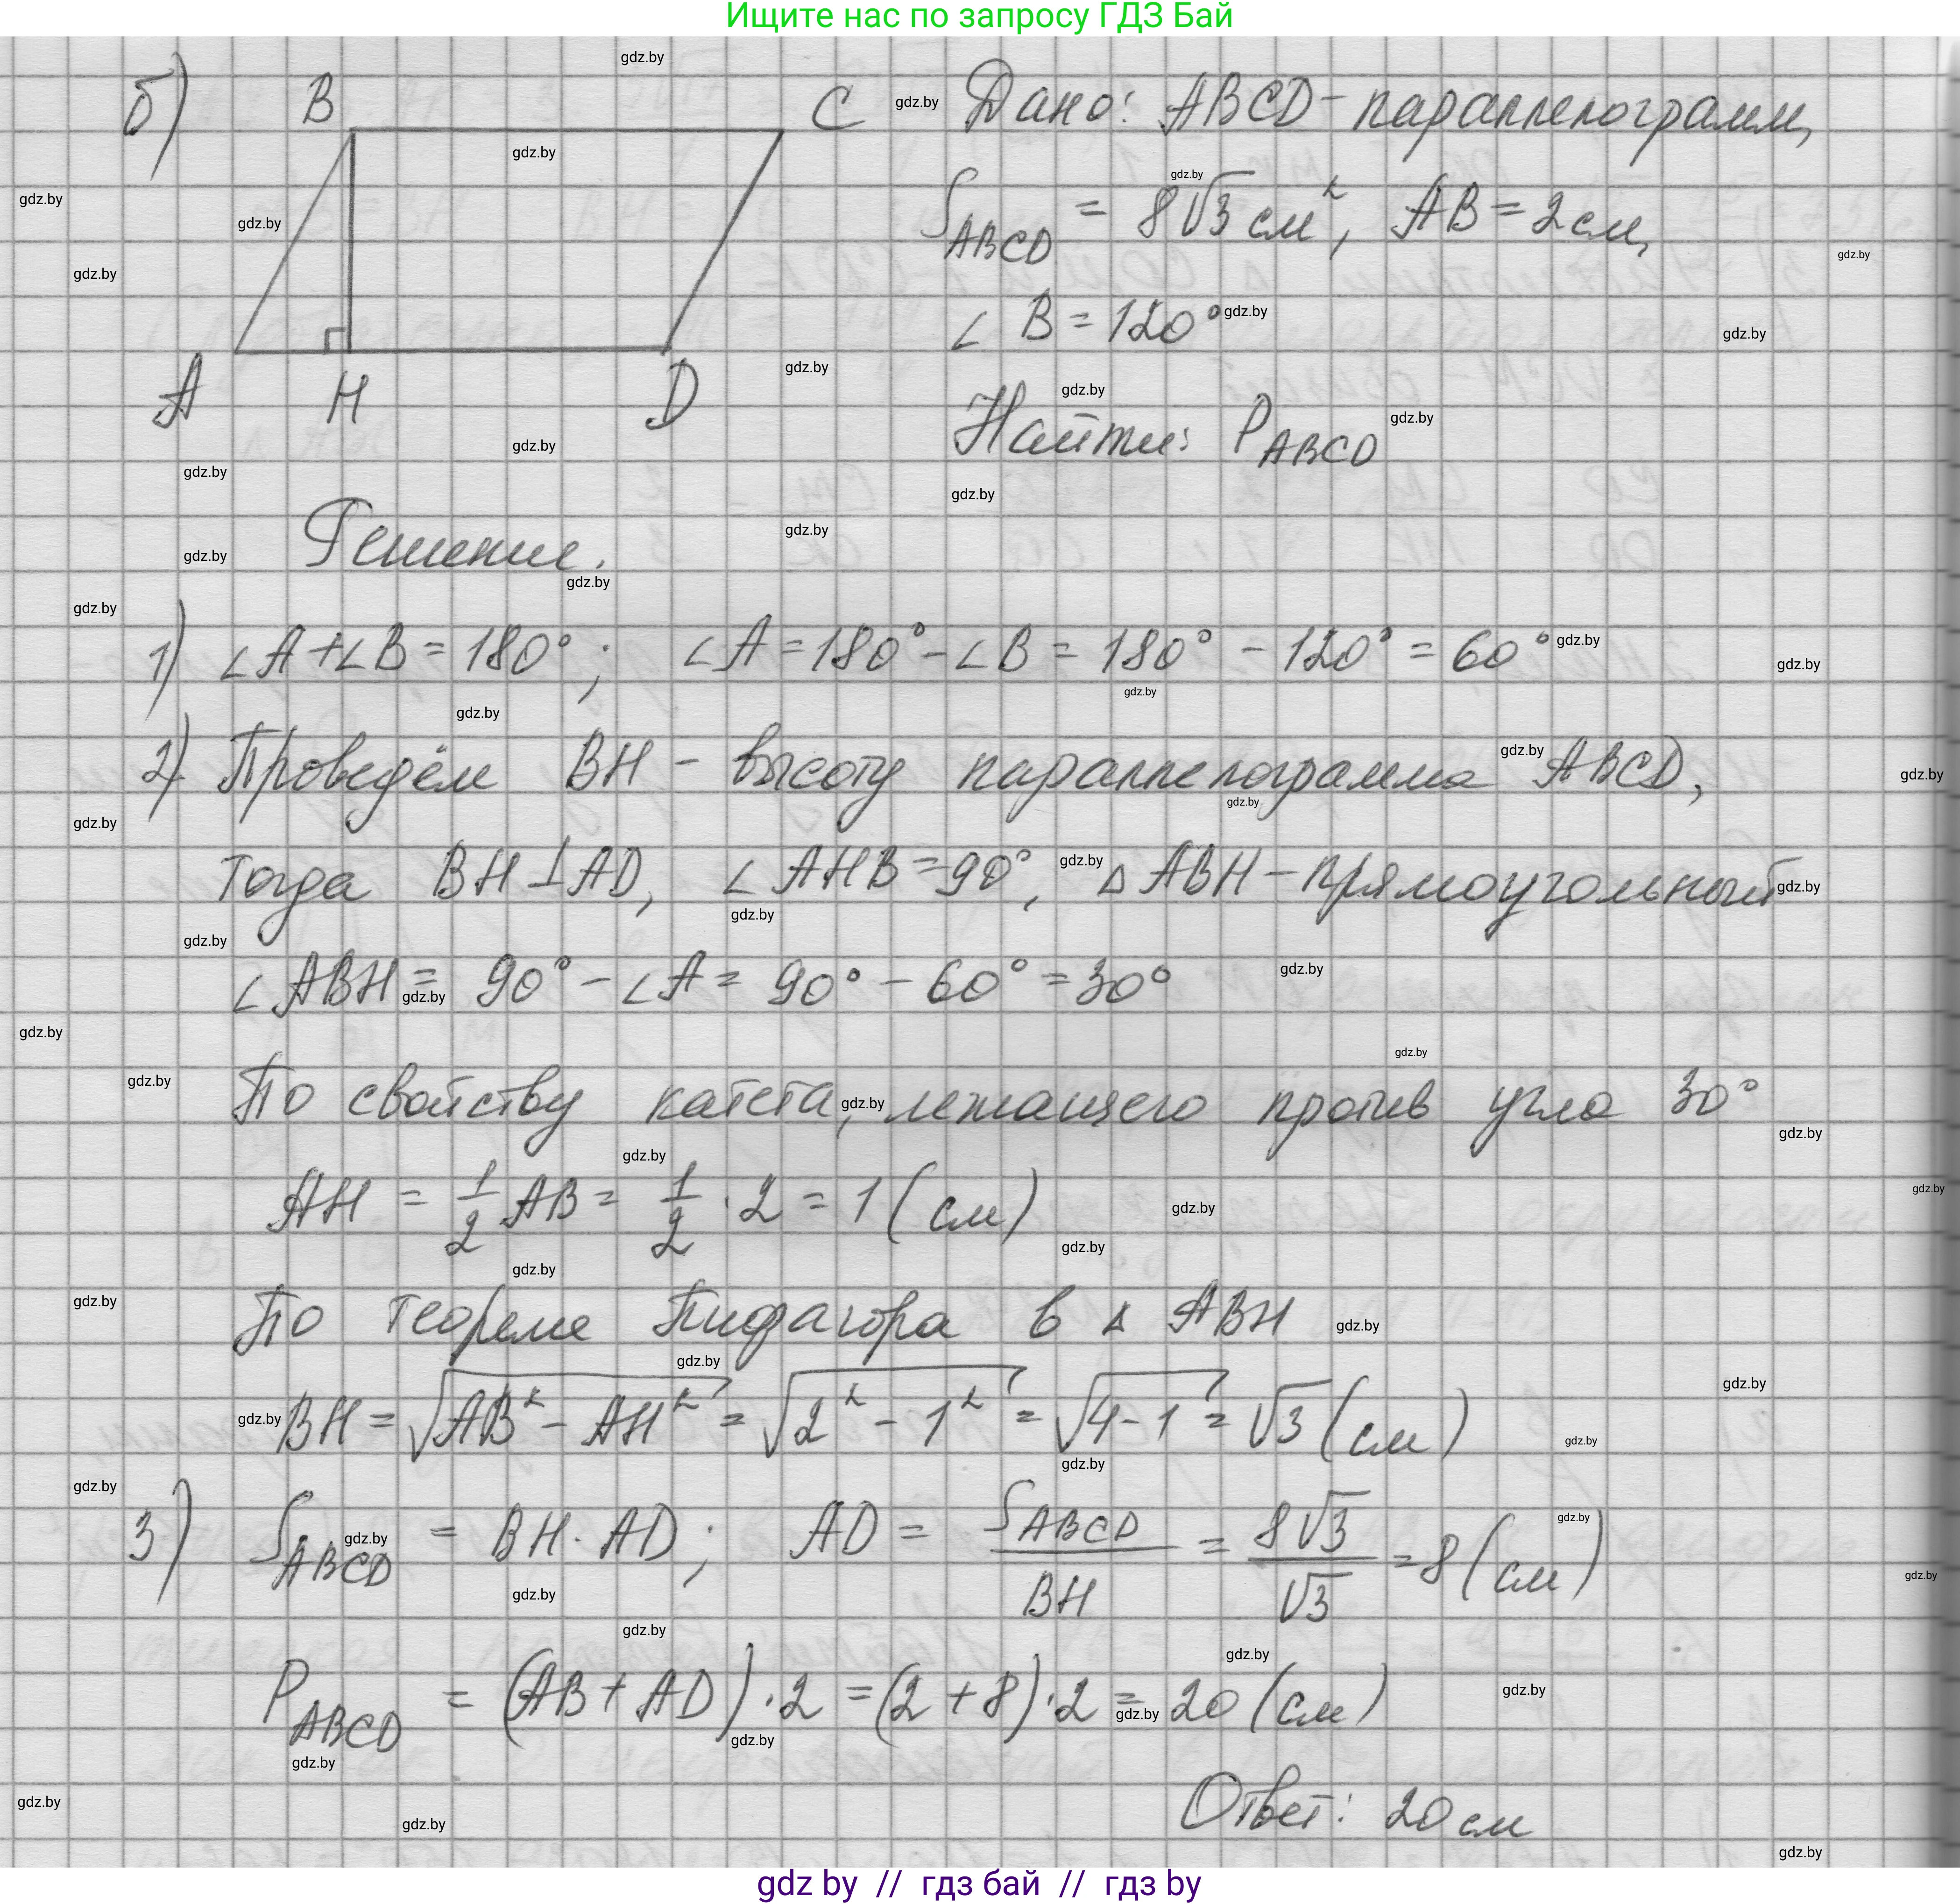 Ищите нас по запросу ГДЗ Бай
б) B C Дано: ABCD - параллелограмм,
S_ABCD = 8√3 см², AB = 2 см,
∠ B = 120°
A H D
Найти: P_ABCD
Решение.
1) ∠A + ∠B = 180°; ∠A = 180° - ∠B = 180° - 120° = 60°
2) Проведём BH - высоту параллелограмма ABCD,
тогда BH ⊥ AD, ∠AHB = 90°, △ABH - прямоугольный
∠ABH = 90° - ∠A = 90° - 60° = 30°
По свойству катета, лежащего против угла 30°
AH = 1/2 AB = 1/2 · 2 = 1 (см)
По теореме Пифагора в △ ABH
BH = √(AB² - AH²) = √(2² - 1²) = √(4 - 1) = √3 (см)
3) S_ABCD = BH · AD; AD = S_ABCD / BH = 8√3 / √3 = 8 (см)
P_ABCD = (AB + AD) · 2 = (2 + 8) · 2 = 20 (см)
Ответ: 20 см
gdz by // гдз бай // гдз by